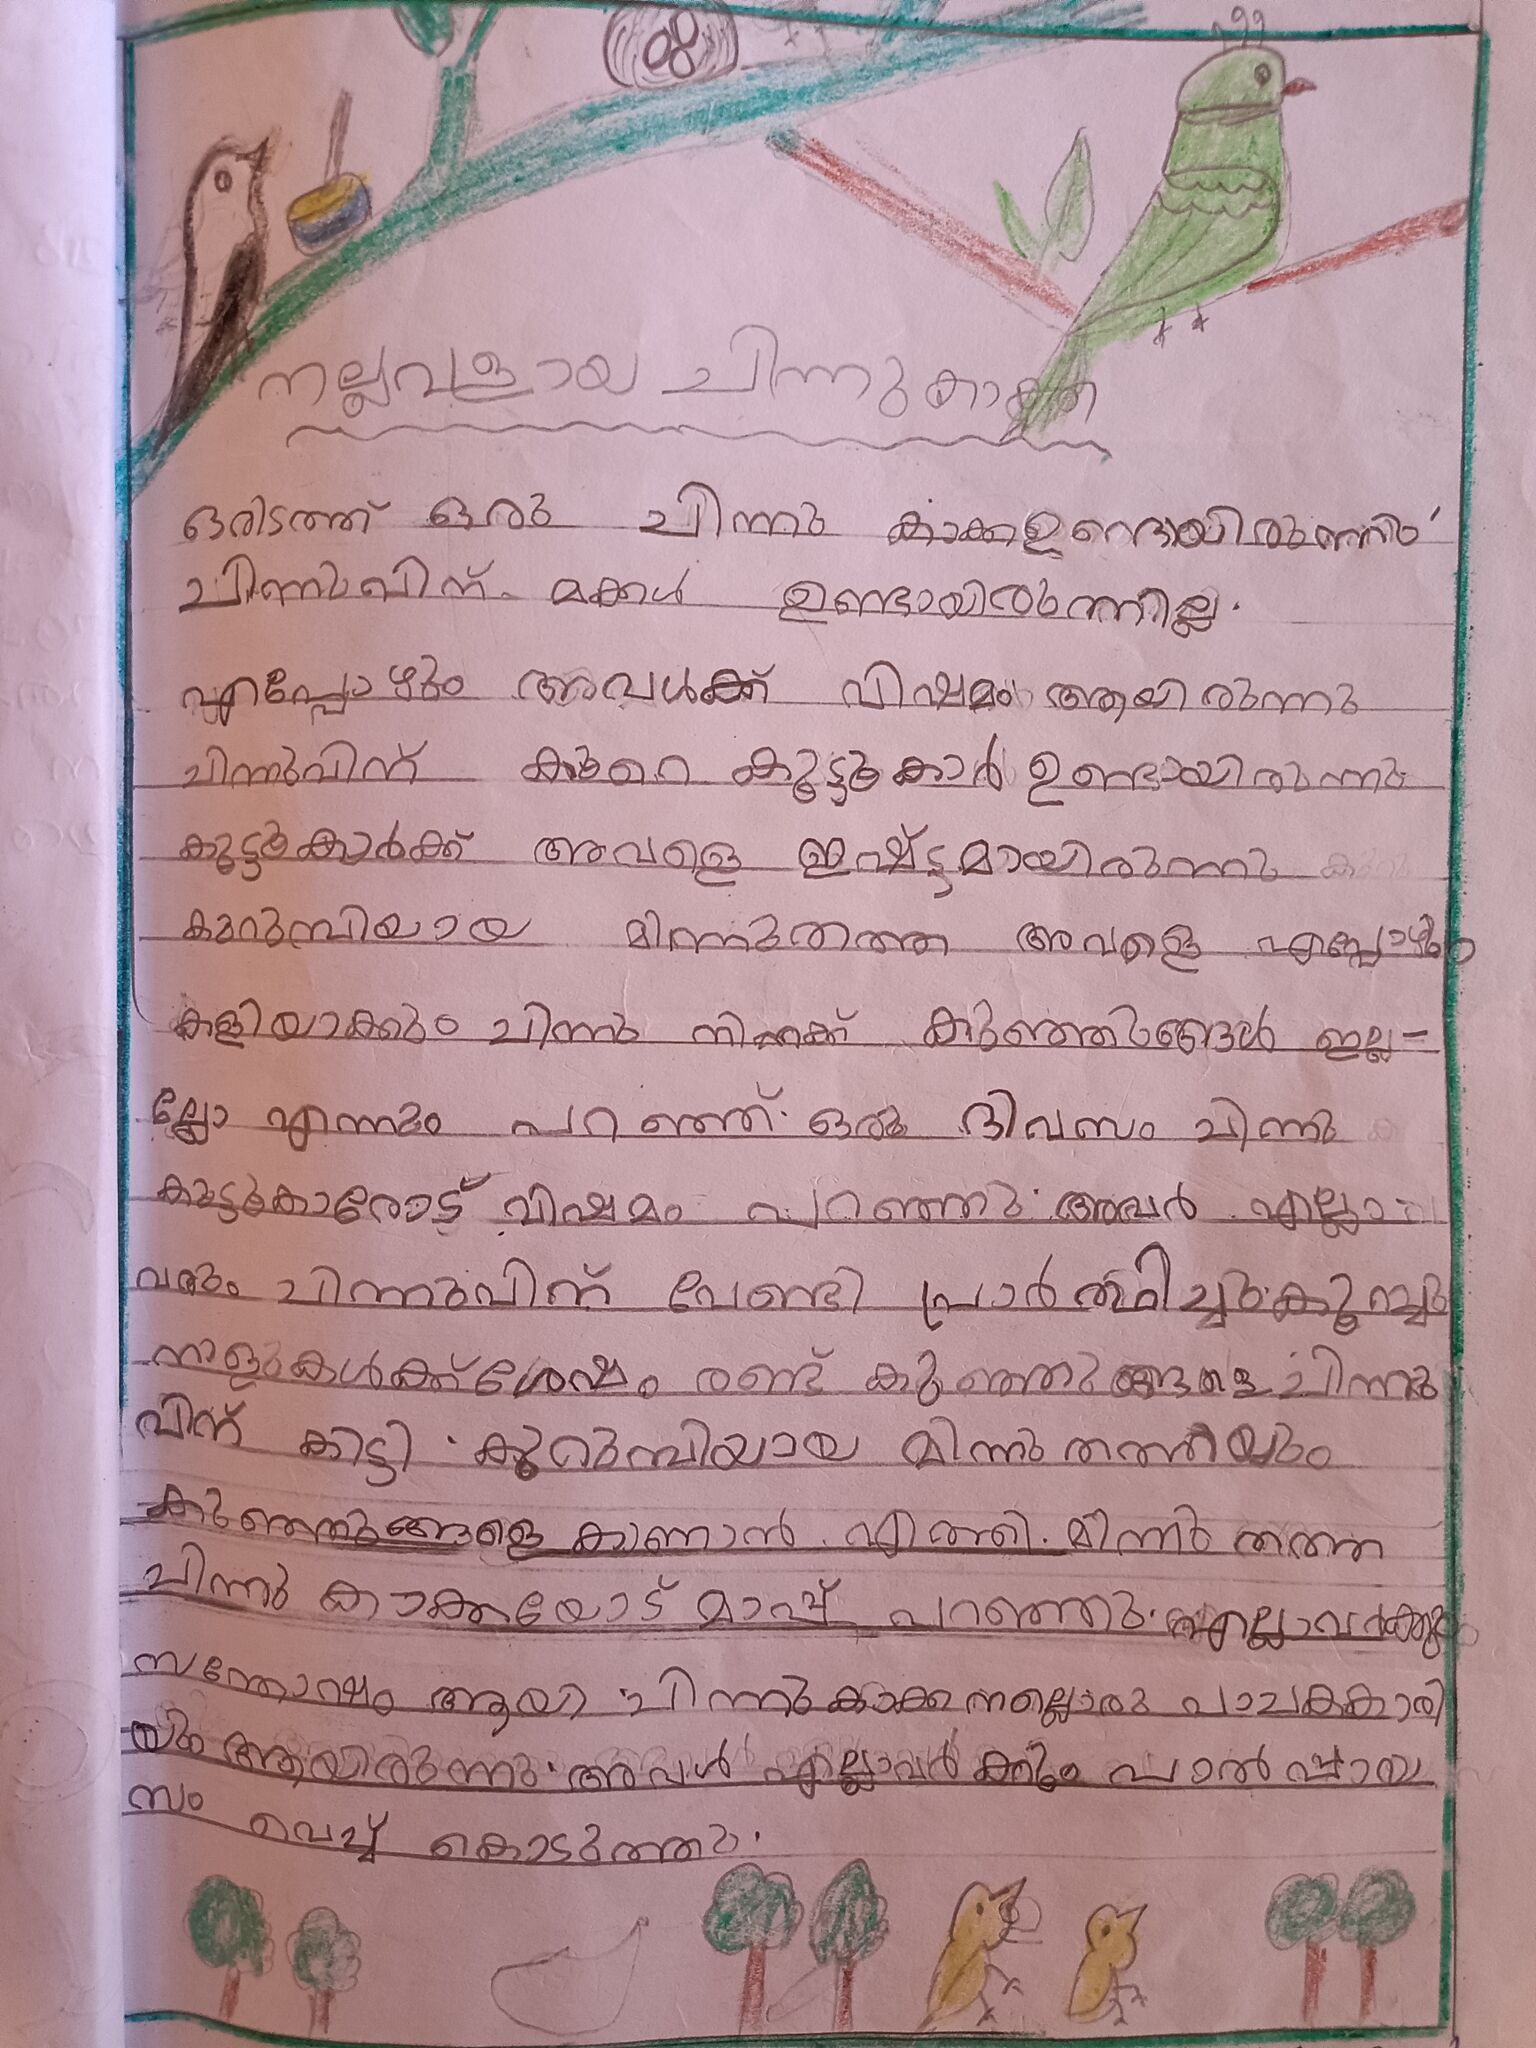 നല്ലവളായ ചിന്നുകാക്ക
ഒരിടത്ത് ഒരു ചിന്നു കാക്ക ഉണ്ടായിരുന്നു
ചിന്നുവിന് മക്കൾ ഉണ്ടായിരുന്നില്ല.
എപ്പോഴും അവൾക്ക് വിഷമം ആയിരുന്നു
ചിന്നുവിന് കുറെ കൂട്ടുകാർ ഉണ്ടായിരുന്നു
കൂട്ടുകാർക്ക് അവളെ ഇഷ്ട്ടമായിരുന്നു
കുറുമ്പിയായ മിന്നുതത്ത അവളെ എപ്പോഴും
കളിയാക്കും ചിന്നു നിനക്ക് കുഞ്ഞുങ്ങൾ ഇല്ല-
ല്ലോ എന്നും പറഞ്ഞ്. ഒരു ദിവസം ചിന്നു
കൂട്ടുകാരോട് വിഷമം പറഞ്ഞു. അവർ എല്ലാ
വരും ചിന്നുവിന് വേണ്ടി പ്രാർത്ഥിച്ചു. കുറച്ചു
നാളുകൾക്ക് ശേഷം രണ്ട് കുഞ്ഞുങ്ങളെ ചിന്നു
വിന് കിട്ടി. കുറുമ്പിയായ മിന്നു തത്തയും
കുഞ്ഞുങ്ങളെ കാണാൻ എത്തി. മിന്നു തത്ത
ചിന്നു കാക്കയോട് മാപ്പ് പറഞ്ഞു. എല്ലാവർക്കും
സന്തോഷം ആയി ചിന്നുകാക്ക നല്ലൊരു പാചകകാരി
യും ആയിരുന്നു. അവൾ എല്ലാവർക്കും പാൽ പ്പായ
സം വെച്ച് കൊടുത്തു.